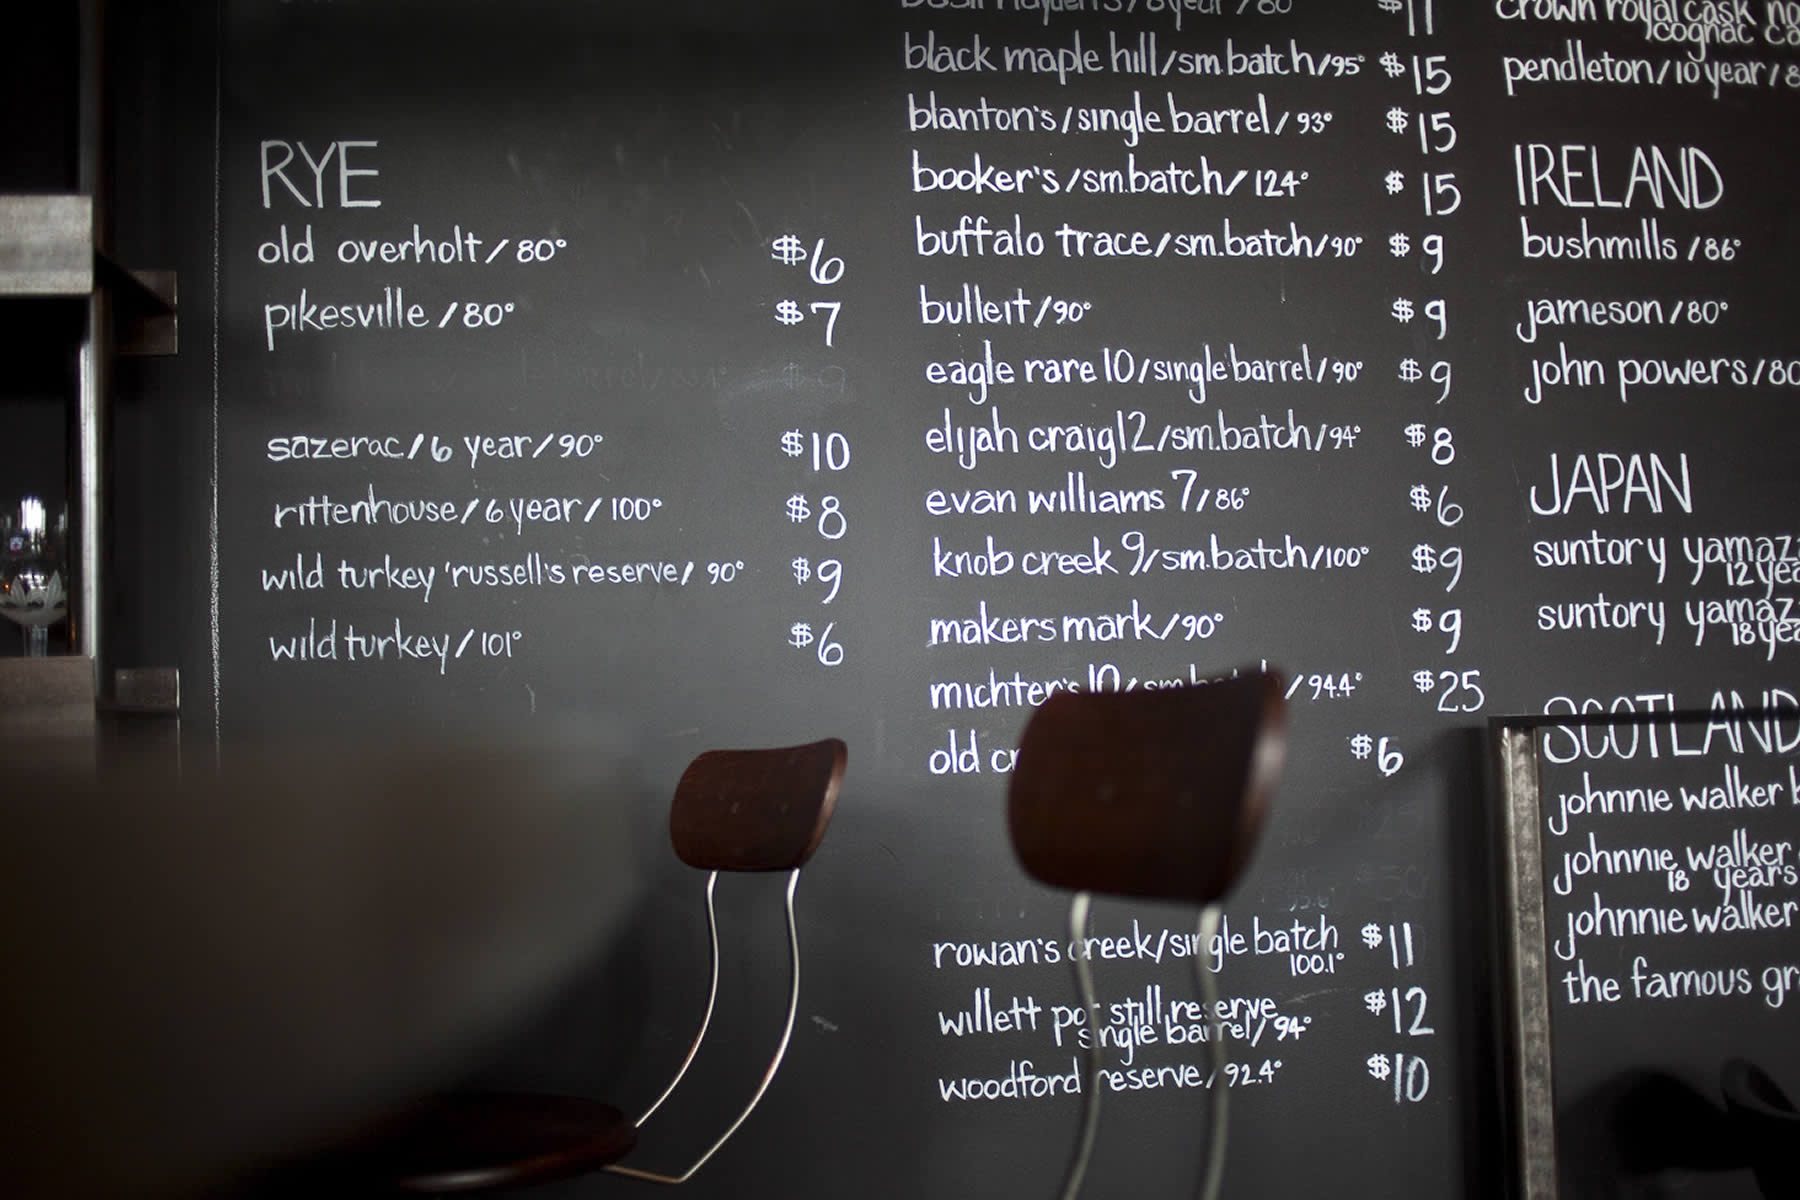 RYE
old overholt/80° $6
pikesville/80° $7
sazerac/6 year/90° $10
rittenhouse/6 year/100° $8
wild turkey 'russell's reserve/ 90° $9
wild turkey/101° $6
/8 year/80 $11
black maple hill/sm.batch/95° $15
blanton's/single barrel/93° $15
booker's/sm.batch/124° $15
buffalo trace/sm.batch/90° $9
bulleit/90° $9
eagle rare 10/single barrel/90° $9
elijah craig12/sm.batch/94° $8
evan williams 7/86° $6
knob creek 9/sm.batch/100° $9
makers mark/90° $9
michter's 10/sm. /94.4° $25
old $6
rowan's creek/single batch $11
100.1°
willett pot still reserve $12
single barrel/94°
woodford reserve/92.4° $10
crown royal cask no
cognac
pendleton/10 year/8
IRELAND
bushmills/86°
jameson/80°
john powers/80
JAPAN
suntory yamaz
12 yea
suntory yamaz
18 yea
SCOTLAND
johnnie walker b
johnnie walker
18 years
johnnie walker
the famous gr